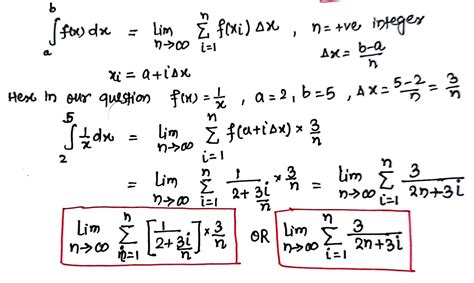 ∫_a^b f(x) dx = lim_{n→∞} Σ_{i=1}^{n} f(xi) Δx , n = +ve integer
Δx = (b-a)/n
xi = a+iΔx
Here In our question f(x) = 1/x , a=2, b=5 , Δx = (5-2)/n = 3/n
∫_2^5 1/x dx = lim_{n→∞} Σ_{i=1}^{n} f(a+iΔx) × 3/n
= lim_{n→∞} Σ_{i=1}^{n} 1/(2+3i/n) × 3/n = lim_{n→∞} Σ_{i=1}^{n} 3/(2n+3i)
Lim_{n→∞} Σ_{i=1}^{n} [1/(2+3i/n)] × 3/n OR Lim_{n→∞} Σ_{i=1}^{n} 3/(2n+3i)